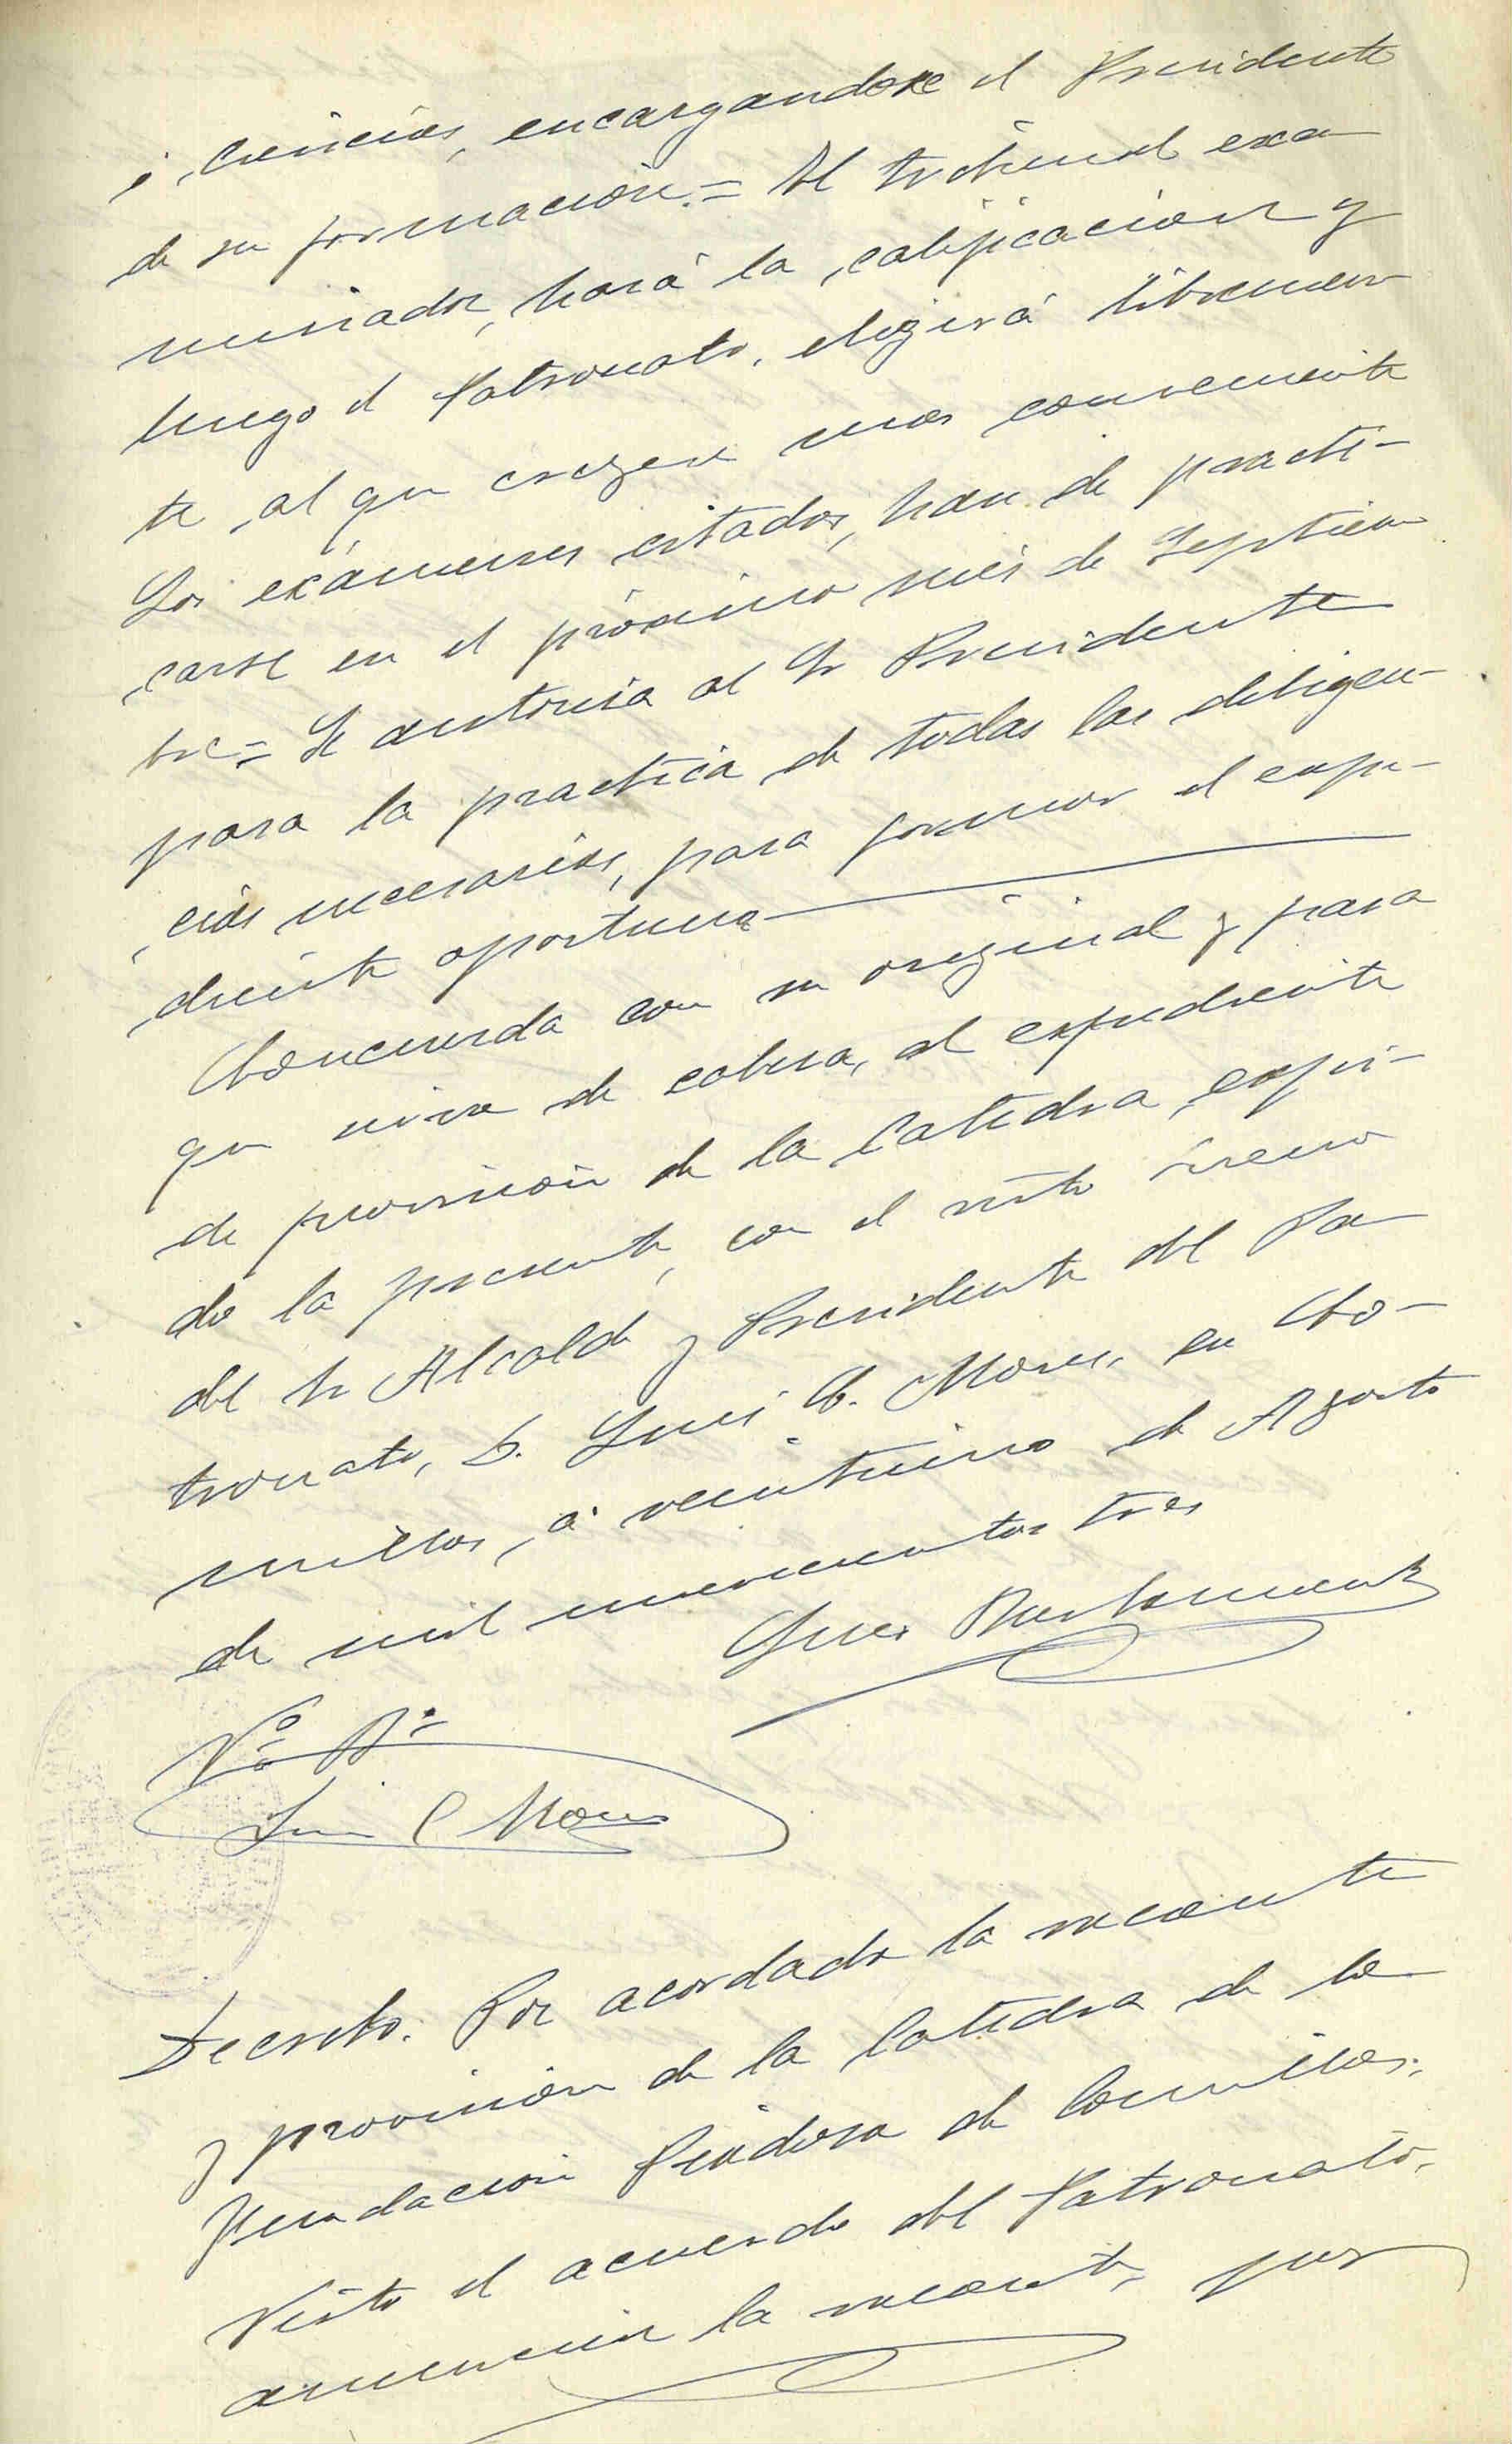 y ciencias, encargandose el Presidente
de su formación.= El tribunal exa
minador, hará la calificacion y
luego el Patronato, elegirá libremen
te, al que crezen mas conveniente
Los exámenes citados, han de practi-
carse en el próximo més de Septiem
bre= Se autorisa al Sr Presidente
para la practica de todas las diligen-
cias necesarias, para formar el expe-
diente oportuno
Concuerda con su original y para
que sirva de cabesa, al expediente
de provisión de la Catedra, expi-
do la presente, con el visto bueno
del Sr Alcalde y Presidente del Pa
tronato, D. Luis C. Mons, en Co-
millas, á veintiuno de Agosto
de mil novecientos tres
Vº Bº
Luis C Mons
Decreto. Por acordado la vacante
y provision de la Catedra de la
Fundación Piadosa de Comillas,
Visto el acuerdo del Patronato,
anuncien la vacante, por